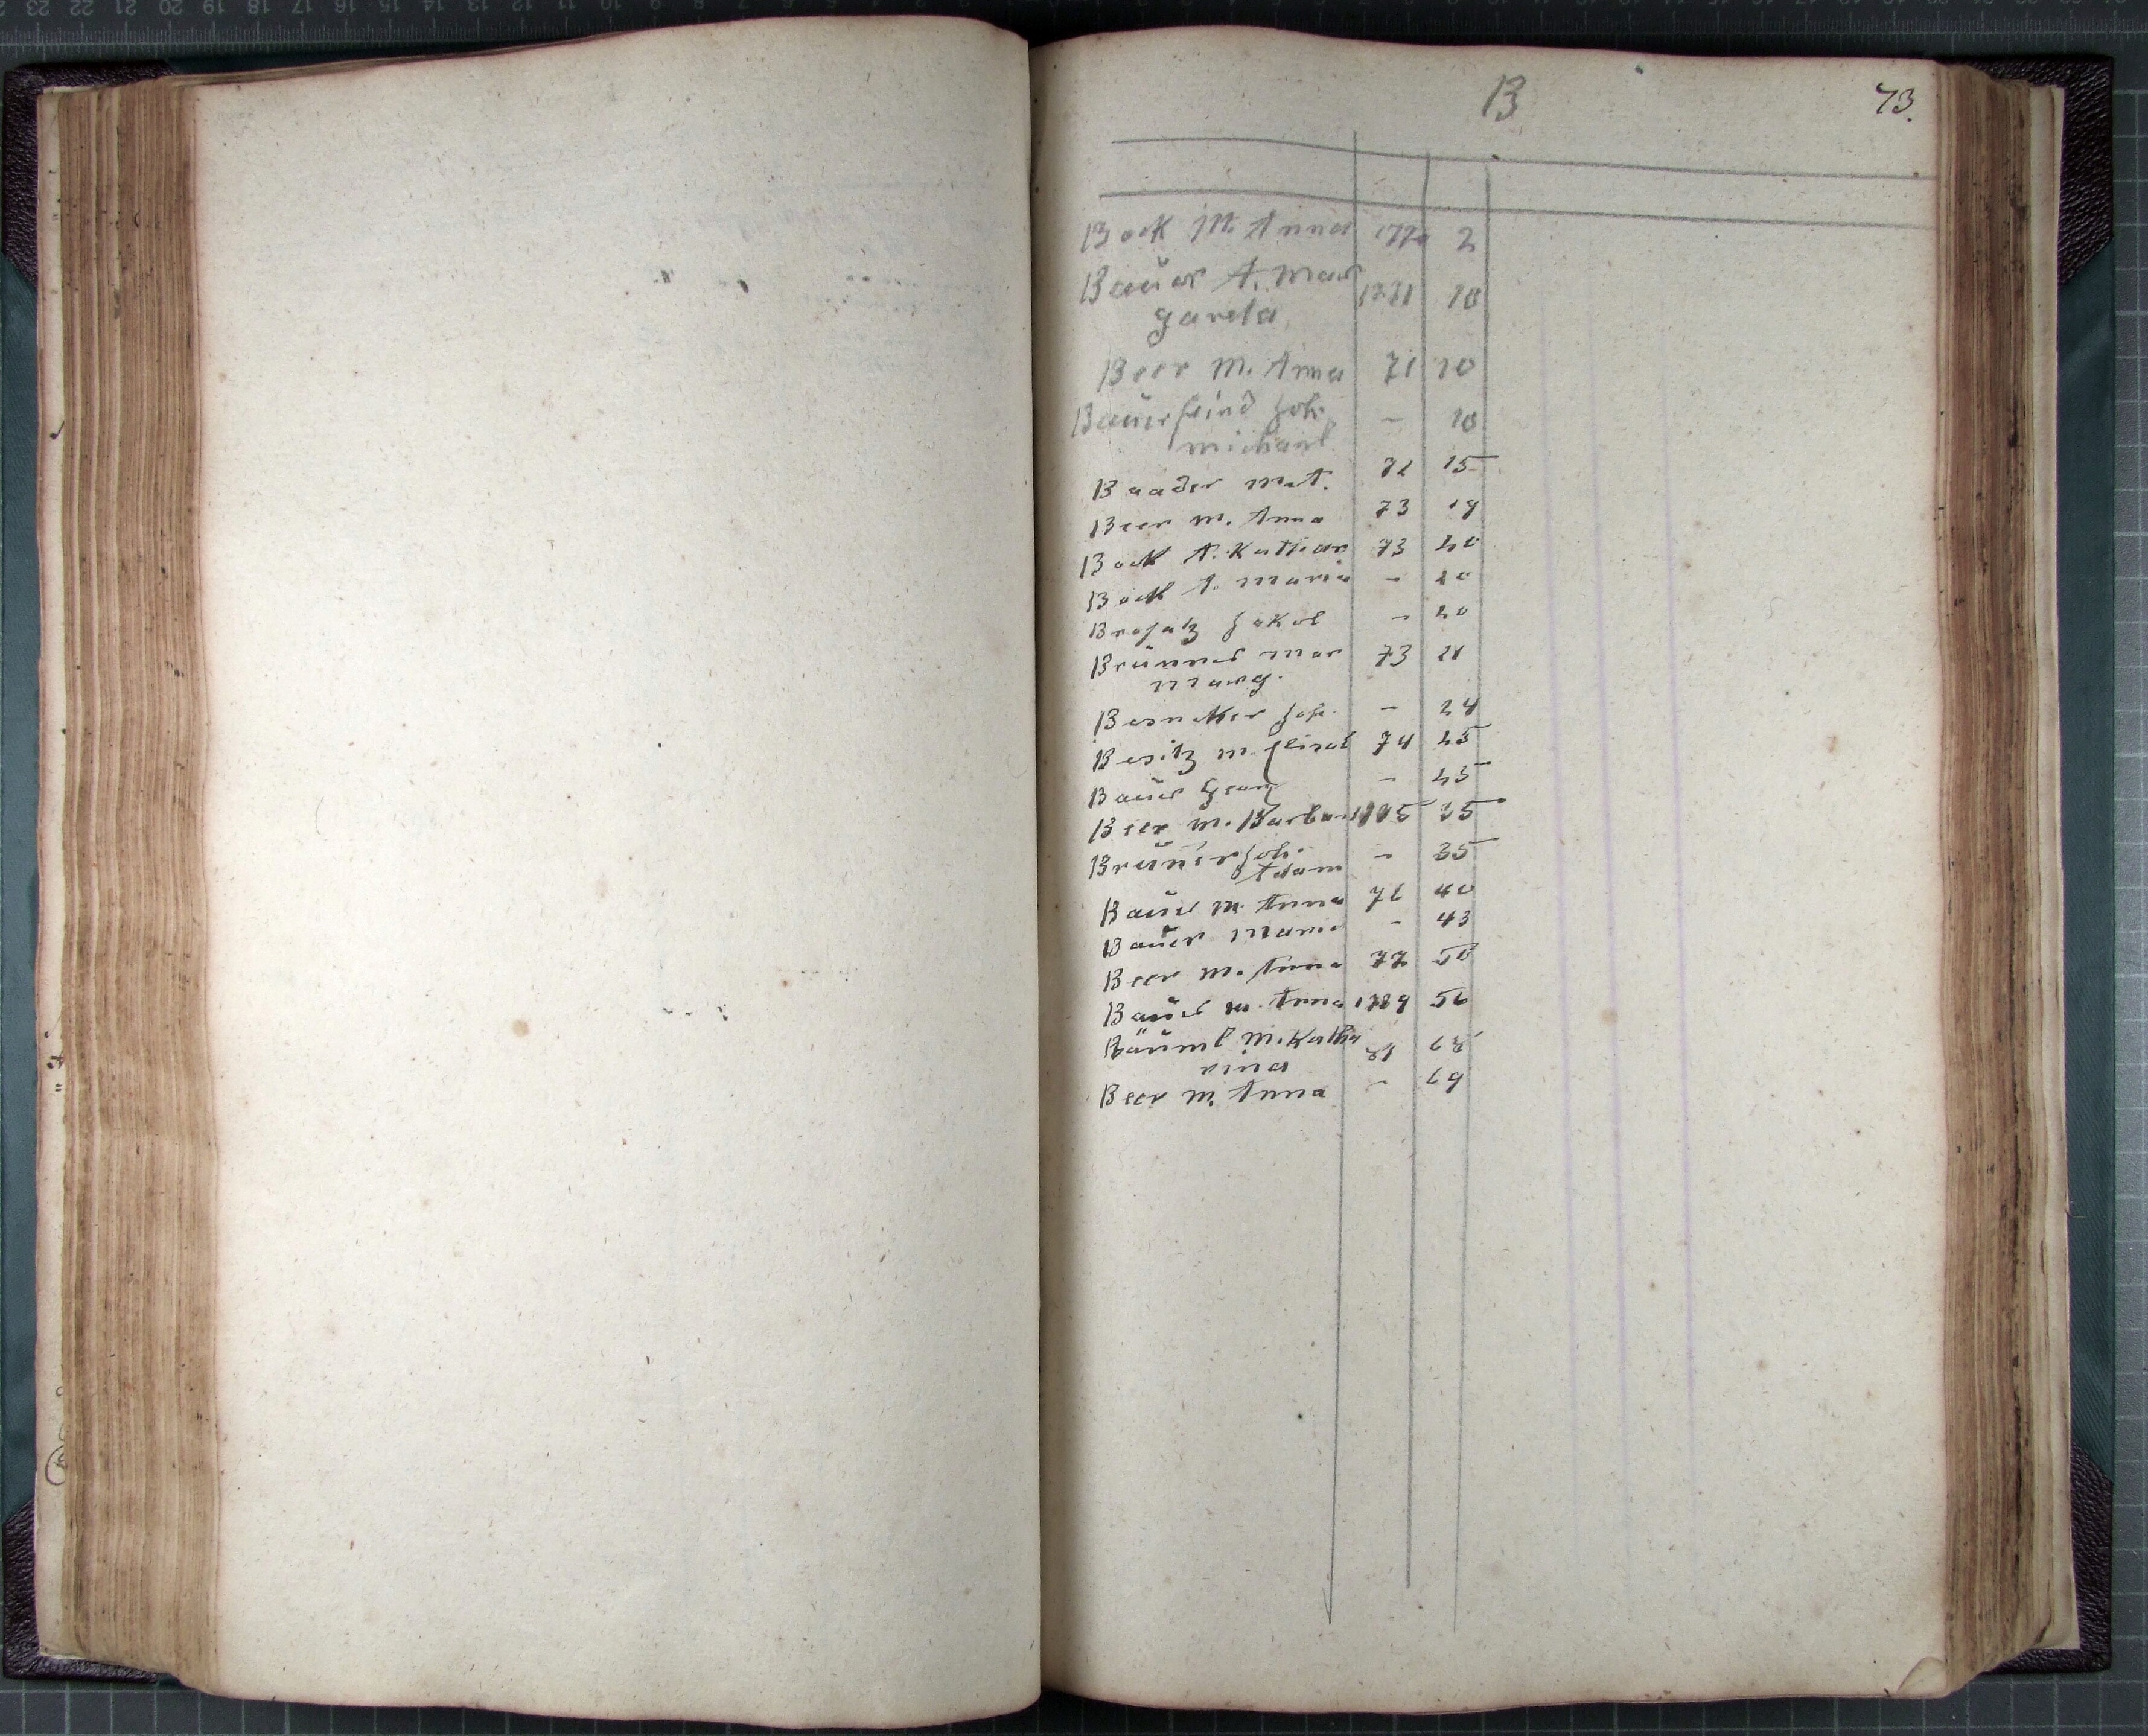 B
73.
Bock M. Anna 1770 2
Bauer A. Mar 1771 10
gareta
Beer M. Anna 71 10
Bauerfeind Joh. – 10
Michael
Baader M. A. 72 15
Beer M. Anna 73 19
Bock A. Kathar 73 20
Bock A. Maria – 20
Jakob – 20
Brünner Mar 73 21
Marg.
Joh. – 24
Besitz M. 74 25
Bauer Georg – 25
Beer M. Barbara 1775 35
Brünner Joh. – 35
Adam
Bauer M. Anna 76 40
Bauer Maria – 43
Beer M. Anna 77 50
Bauer M. Anna 56
Bäuml M. Katha 81
rina
Beer M. Anna – 69